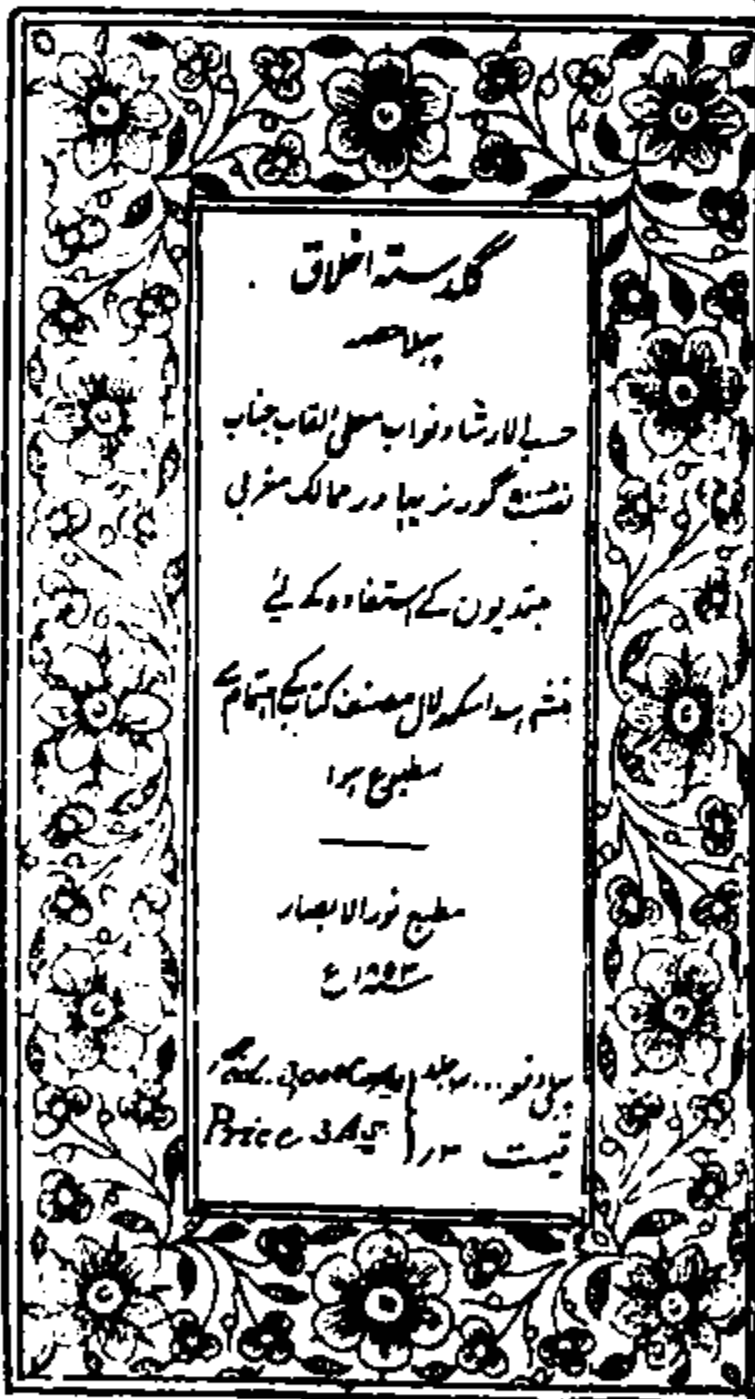 گلدستہ اخلاق
پہلا حصہ
حسب الارشاد نواب معلی القاب جناب
لفٹننٹ گورنر بہادر ممالک مغربی
مبتدیون کے استفادہ کے لئے
سداسکھ لال مصنف کتاب کے اہتمام سے
مطبوع ہوا
مطبع نور الابصار
سنہ ۱۸۵۳ع
پہلی دفعہ ۳۰۰۰ جلد 1st Ed. 3,000 Copies
قیمت ۳ر Price 3 As